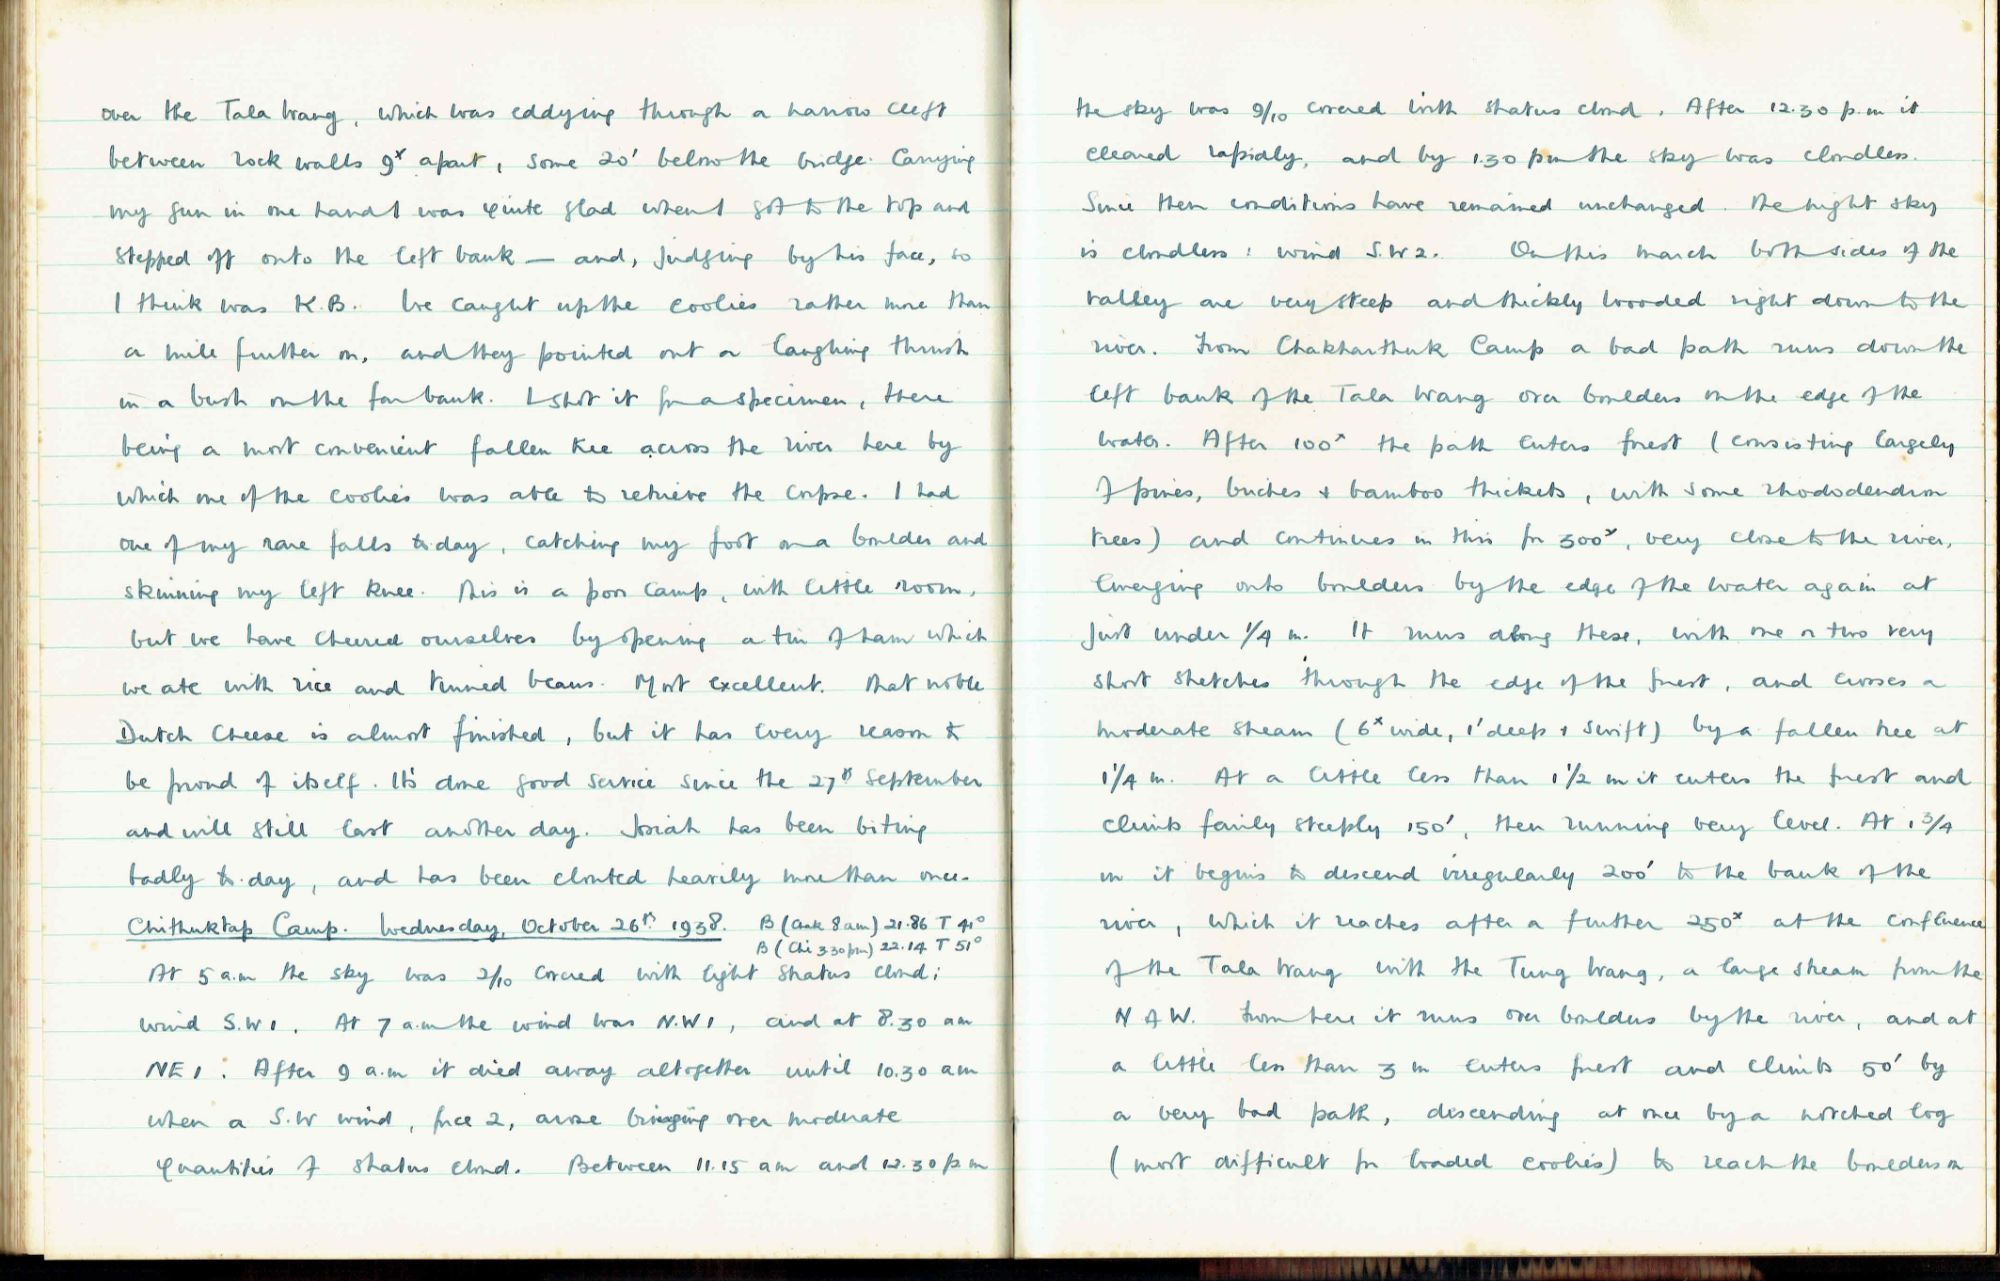 over the Tala Wang, which was eddying through a narrow cleft
between rock walls 9ˣ apart, some 20' below the bridge. Carrying
my gun in one hand I was quite glad when I got to the top and
stepped off onto the left bank — and, judging by his face, so
I think was K.B. We caught up the coolies rather more than
a mile further on, and they pointed out a laughing thrush
in a bush on the far bank. I shot it for a specimen, there
being a most convenient fallen tree across the river here by
which one of the coolies was able to retrieve the corpse. I had
one of my rare falls to-day, catching my foot on a boulder and
skinning my left knee. This is a poor camp, with little room,
but we have cheered ourselves by opening a tin of ham which
we ate with rice and tinned beans. Most excellent. That noble
Dutch Cheese is almost finished, but it has every reason to
be proud of itself. It's done good service since the 27th September
and will still last another day. Josiah has been biting
badly to-day, and has been clouted heavily more than once.
Chithuktap Camp. Wednesday, October 26th 1938. B (Chak 8 am) 21.86 T 41°
B (Chi 3.30 pm) 22.14 T 51°
At 5 a.m the sky was 2/10 covered with light stratus cloud;
wind S.W 1. At 7 a.m the wind was N.W 1, and at 8.30 am
NE 1. After 9 a.m it died away altogether until 10.30 am
when a S.W wind, force 2, arose bringing over moderate
quantities of stratus cloud. Between 11.15 am and 12.30 p m
the sky was 9/10 covered with stratus cloud. After 12.30 p.m it
cleared rapidly, and by 1.30 pm the sky was cloudless.
Since then conditions have remained unchanged. The night sky
is cloudless: wind S.W 2. On this march both sides of the
valley are very steep and thickly wooded right down to the
river. From Chakharthuk Camp a bad path runs down the
left bank of the Tala Wang over boulders on the edge of the
water. After 100ˣ the path enters forest (consisting largely
of pines, birches + bamboo thickets, with some rhododendron
trees) and continues in this for 300ˣ, very close to the river,
emerging onto boulders by the edge of the water again at
just under 1/4 m. It runs along these, with one or two very
short stretches through the edge of the forest, and crosses a
moderate stream (6ˣ wide, 1' deep + swift) by a fallen tree at
1 1/4 m. At a little less than 1 1/2 m it enters the forest and
climbs fairly steeply 150', then running very level. At 1 3/4
m it begins to descend irregularly 200' to the bank of the
river, which it reaches after a further 250ˣ at the confluence
of the Tala Wang with the Tung Wang, a large stream from the
N of W. From here it runs over boulders by the river, and at
a little less than 3 m enters forest and climbs 50' by
a very bad path, descending at once by a notched log
(most difficult for loaded coolies) to reach the boulders on